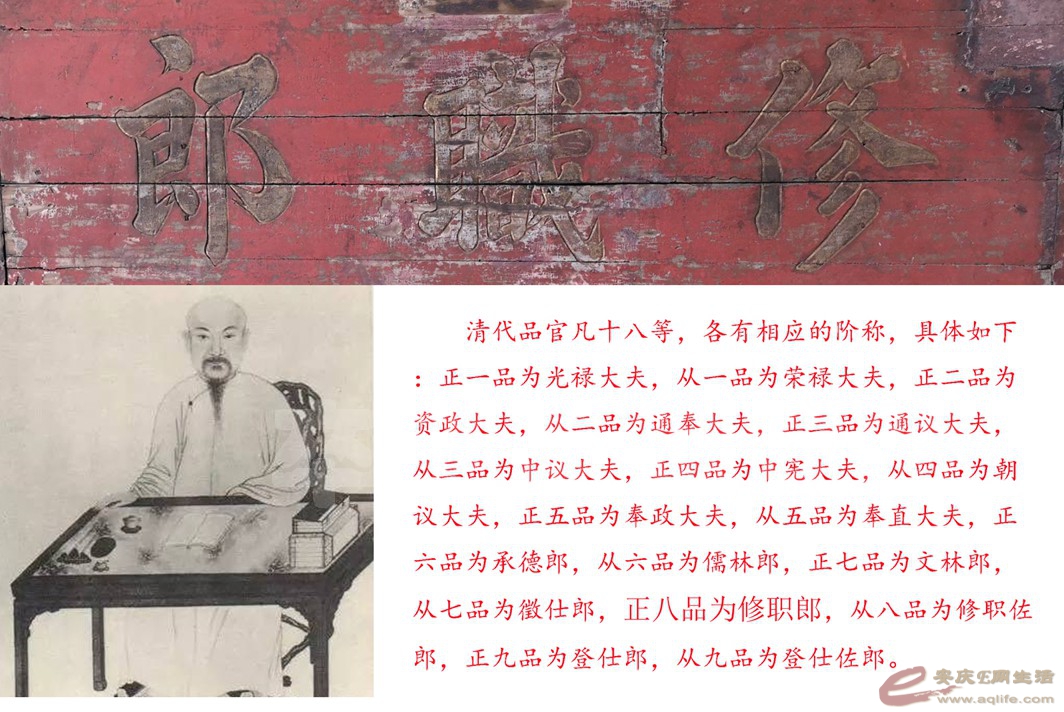 修職郎
清代品官凡十八等，各有相应的阶称，具体如下
：正一品为光禄大夫，从一品为荣禄大夫，正二品为
资政大夫，从二品为通奉大夫，正三品为通议大夫，
从三品为中议大夫，正四品为中宪大夫，从四品为朝
议大夫，正五品为奉政大夫，从五品为奉直大夫，正
六品为承德郎，从六品为儒林郎，正七品为文林郎，
从七品为徵仕郎，正八品为修职郎，从八品为修职佐
郎，正九品为登仕郎，从九品为登仕佐郎。
安庆E网生活
www.aqlife.com